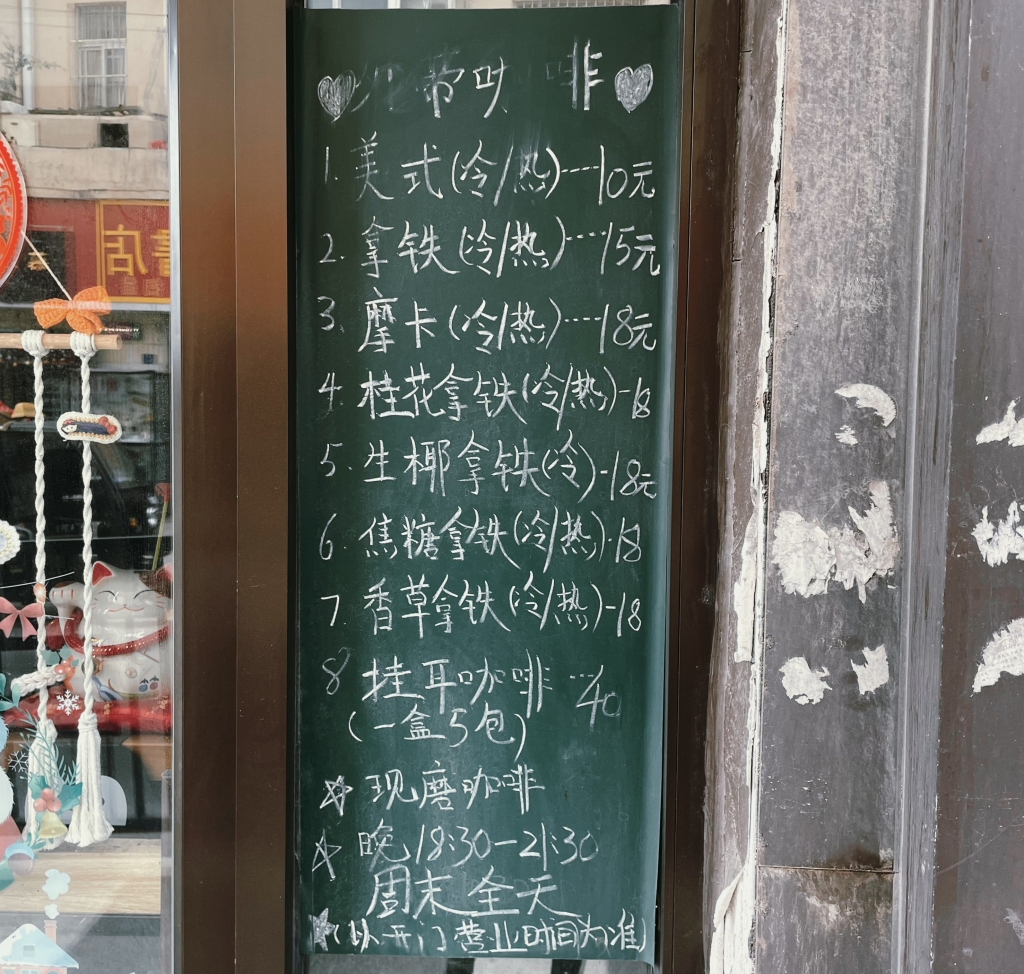 啡
1. 美式(冷/热)----10元
2. 拿铁(冷/热)----15元
3. 摩卡(冷/热)----18元
4. 桂花拿铁(冷/热)-18
5. 生椰拿铁(冷)-18元
6. 焦糖拿铁(冷/热)-18
7. 香草拿铁(冷/热)-18
8 挂耳咖啡 ---40
(一盒5包)
☆ 现磨咖啡
☆ 晚18:30—21:30
周末全天
☆(以开门营业时间为准)
書店